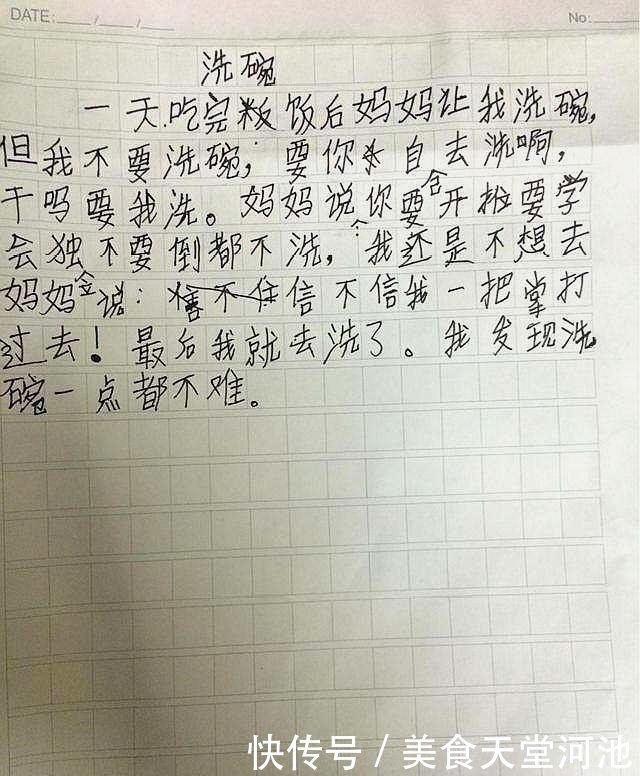 DATE: No:
洗碗
一天.吃完粄饭后妈妈让我洗碗,
但我不要洗碗,要你自去洗啊,
干吗要我洗。妈妈说你要合开拉要学
会独不要倒都不洗,个我还是不想去
妈妈会说:信不信我一把掌打
过去!最后我就去洗了。我发现洗
碗一点都不难。
快传号/美食天堂河池